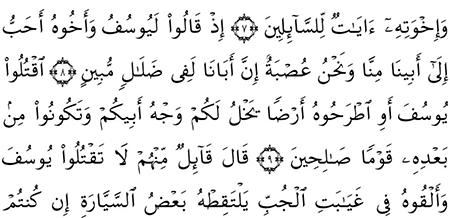 وَإِخْوَتِهِۦٓ ءَايَٰتٌ لِّلسَّآئِلِينَ ۝٧ إِذْ قَالُواْ لَيُوسُفُ وَأَخُوهُ أَحَبُّ
إِلَىٰٓ أَبِينَا مِنَّا وَنَحْنُ عُصْبَةٌ إِنَّ أَبَانَا لَفِى ضَلَٰلٍ مُّبِينٍ ۝٨ ٱقْتُلُواْ
يُوسُفَ أَوِ ٱطْرَحُوهُ أَرْضًا يَخْلُ لَكُمْ وَجْهُ أَبِيكُمْ وَتَكُونُواْ مِنۢ
بَعْدِهِۦ قَوْمًا صَٰلِحِينَ ۝٩ قَالَ قَآئِلٌ مِّنْهُمْ لَا تَقْتُلُواْ يُوسُفَ
وَأَلْقُوهُ فِى غَيَٰبَتِ ٱلْجُبِّ يَلْتَقِطْهُ بَعْضُ ٱلسَّيَّارَةِ إِن كُنتُمْ